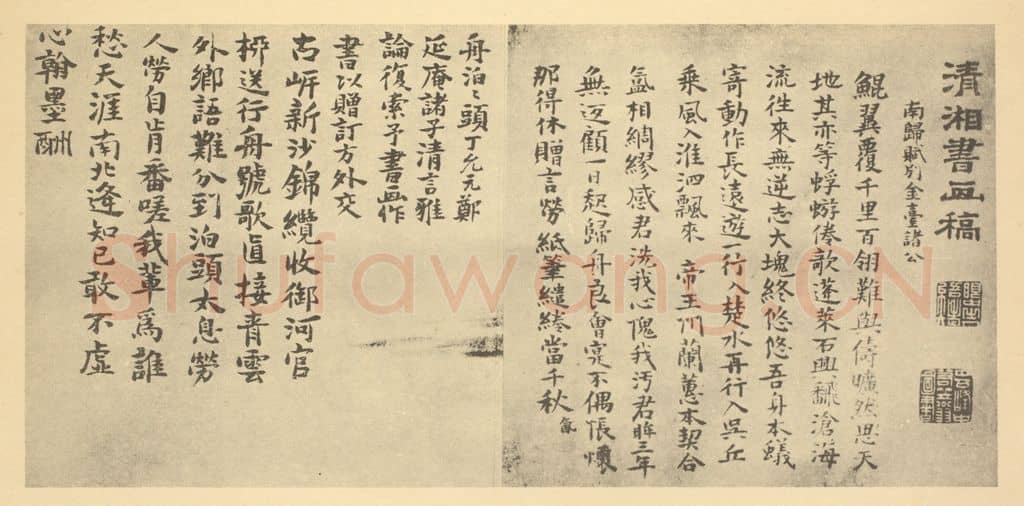 清湘書畫稿
南歸賦別金臺諸公
鯤翼覆千里百翎難與儔曠然思天
地其亦等蜉蝣倦歌蓬萊石興飜滄海
流往來無逆志大塊終悠悠吾身本蟻
寄動作長遠遊一行入楚水再行入吳丘
乘風入淮泗飄來 帝王州蘭蕙本契合
氳相綢繆感君洗我心愧我汚君眸三年
無返顧一日起歸舟良會寔不偶悵懷
那得休贈言勞紙筆繾綣當千秋 氤
舟泊〻頭丁允元鄭
延庵諸子清言雅
論復索予書畫作
書以贈訂方外交
古岸新沙錦纜收御河官
柳送行舟號歌直接青雲
外鄉語難分到泊頭太息勞
人勞自肯番嗟我輩爲誰
愁天涯南北逢知己敢不虛
心翰墨酬
Shufawang.CN